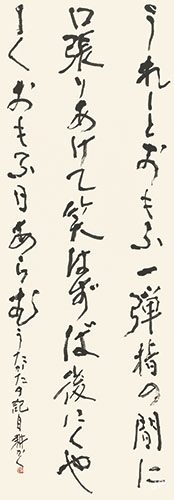 うれしとおもふ一弾指の間に
口張りあけて笑はずば後にくや
しくおもふ日あらむ うたかたの記